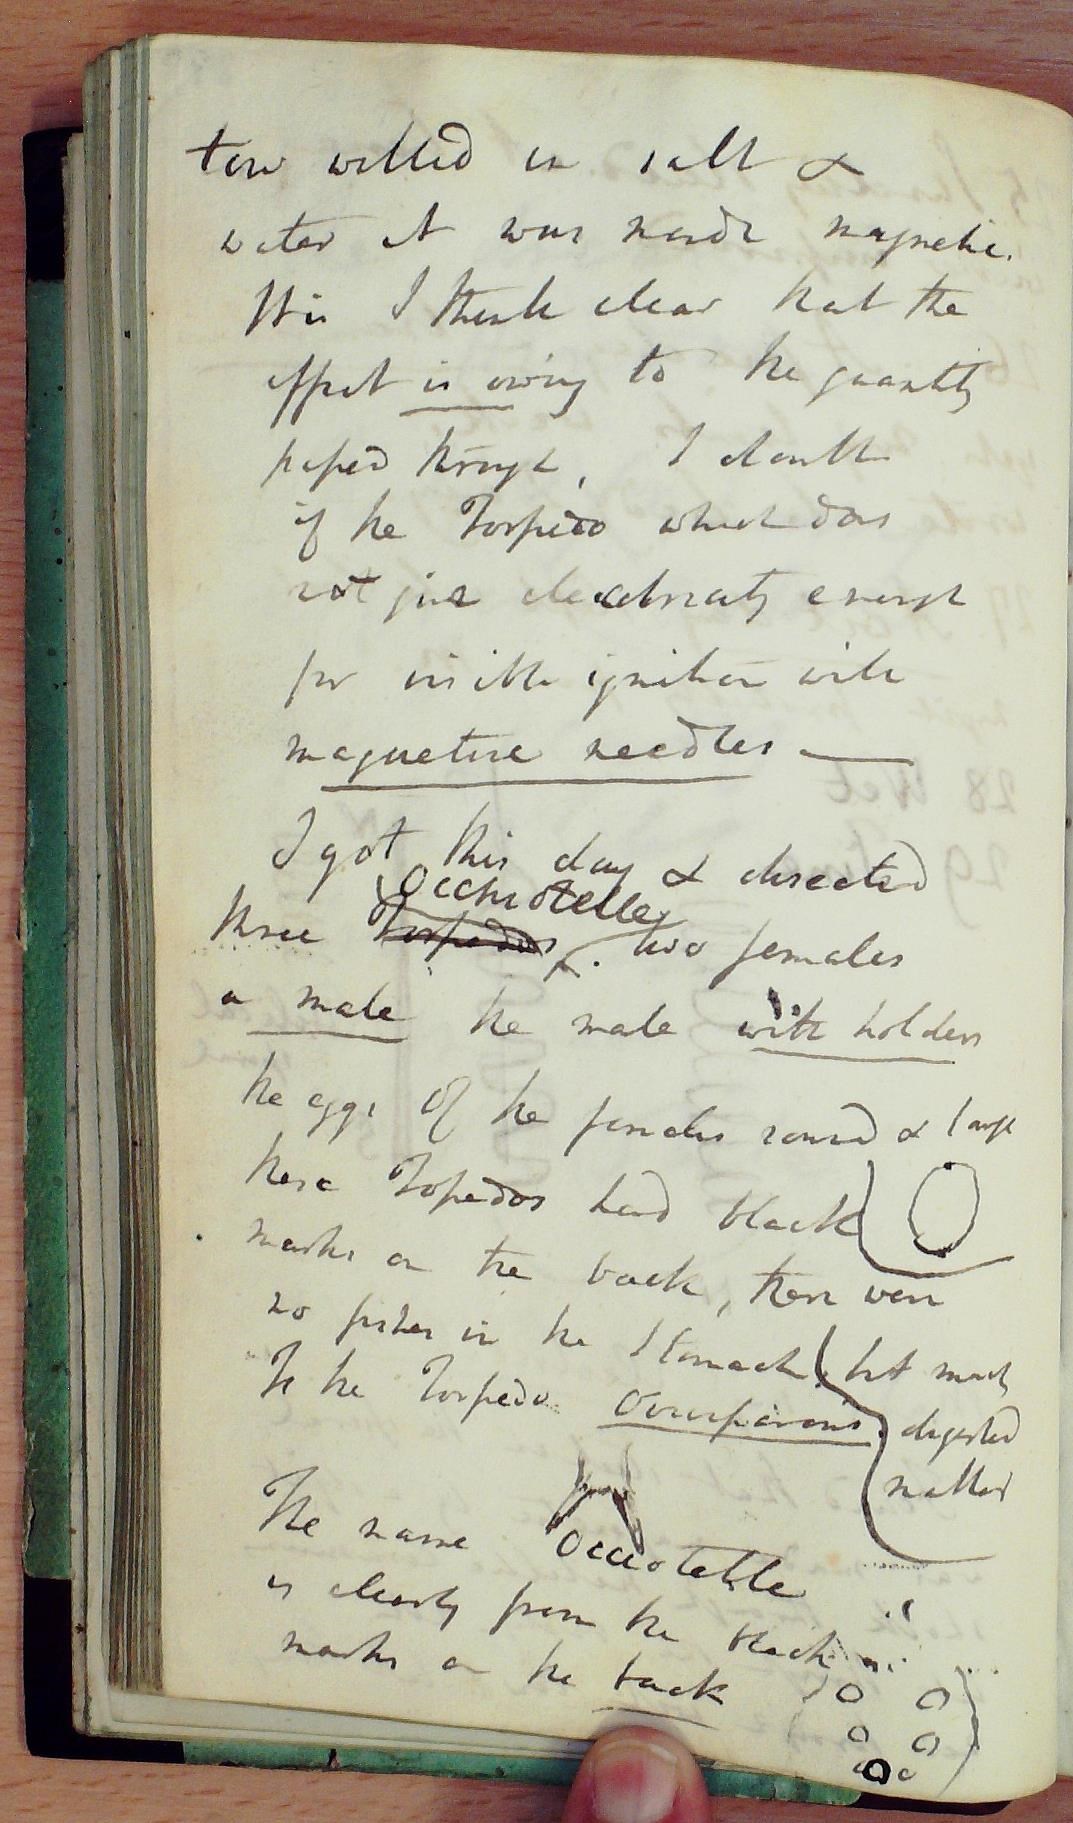 tow wetted in salt &
water it was made magnetic.
It is I think clear that the
effect is owing to the quantity
passed through, I doubt
if the Torpedo which does
not give electricity enough
for visible ignition will
magnetise needles —
I got this day & disected
Occhiatelle
three Torpedos . two females
a male the male with holders
the eggs of the females round & large
these Topedos had black
marks on the back, there were
no fishes in the Stomach but much
digested
matter
Is the Torpedo Oviviparous.
The name Occiotelle
is clearly from the black
marks on the back